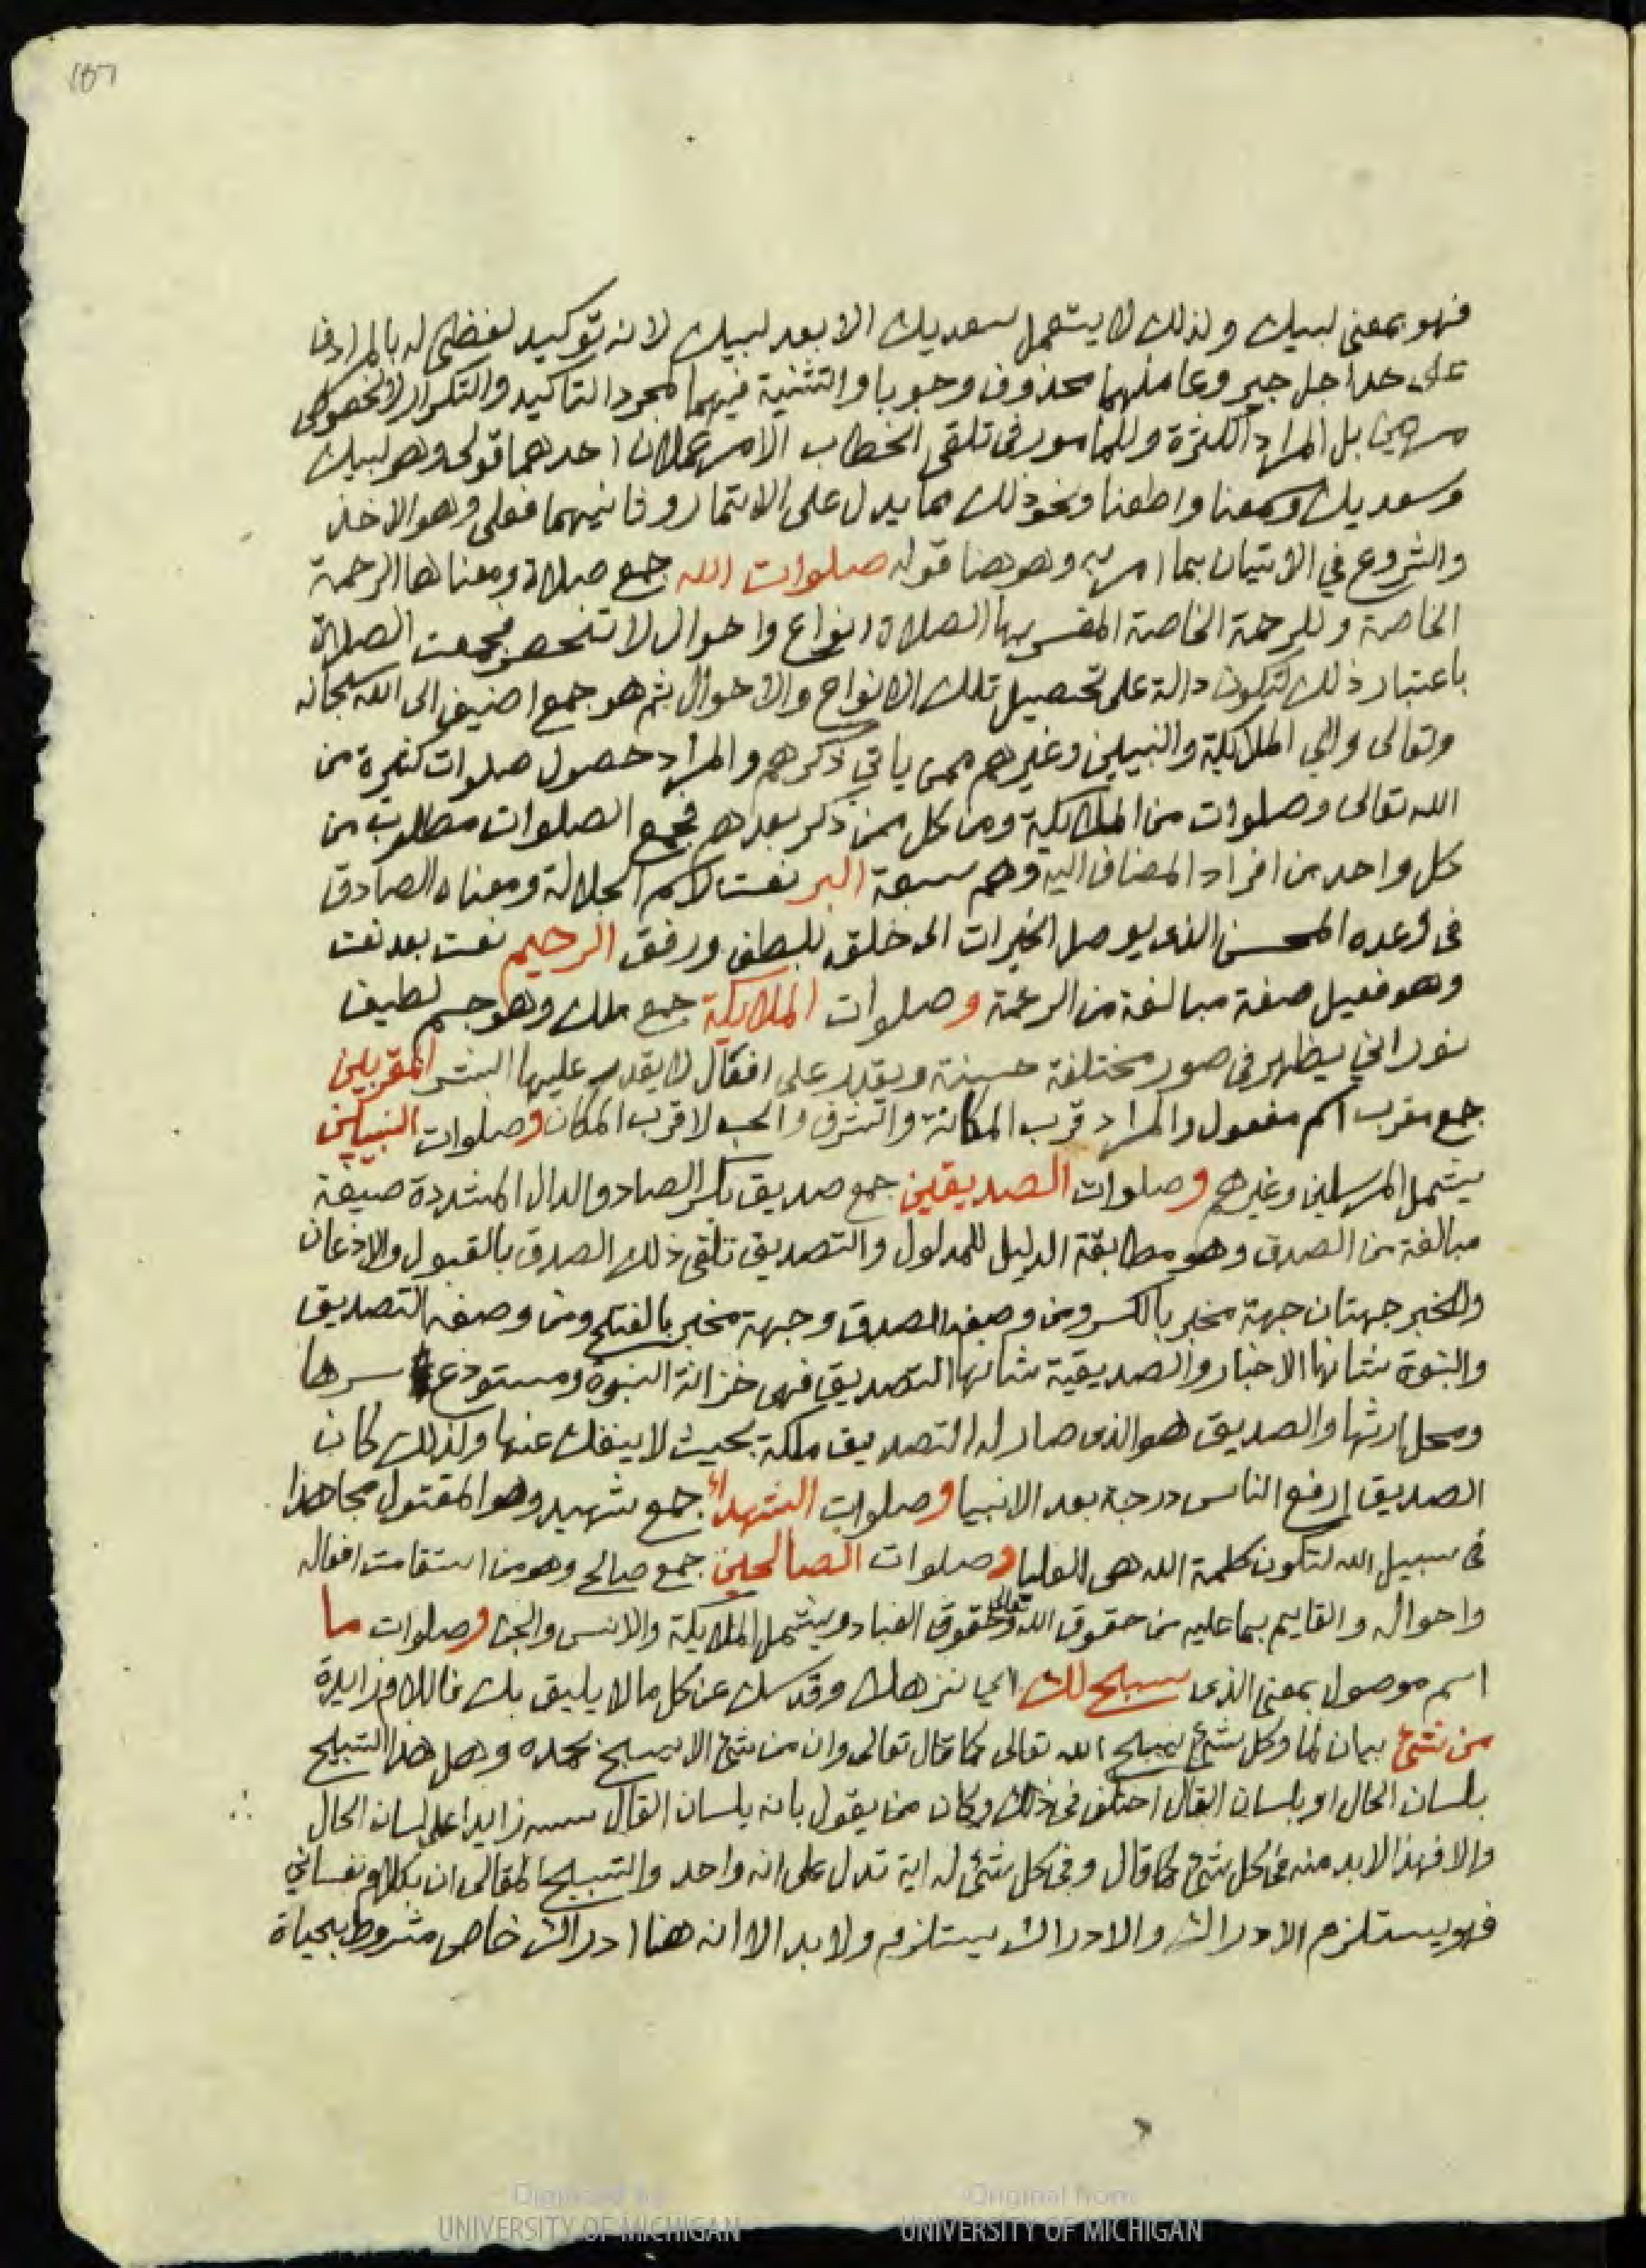 ١٥٦
فهو بمعنى لبيك ولذلك لا يستعمل سعديك الا بعد لبيك لانه توكيد لفظي له بالمرادف
على حد اجل جير وعاملهما محذوف وجوبا والتثنية فيهما لمجرد التاكيد والتكرار لا لخصوص
مرتين بل المراد الكثرة وللمامور في تلقي الخطاب الامر عملان احدهما قولى وهو لبيك
وسعديك وسمعنا واطعنا ونحو ذلك مما يدل على الائتمار وثانيهما فعلى وهو الاخذ
والشروع في الاتيان بما امر به وهو هنا قوله صلوات الله جمع صلاة ومعناها الرحمة
الخاصة وللرحمة الخاصة المفسر بها الصلاة انواع واحوال لا تنحصر فجمعت الصلاة
باعتبار ذلك لتكون دالة على تحصيل تلك الانواع والاحوال ثم هو جمع اضيف الى الله سبحانه
وتعالى والي الملايكة والنبيين وغيرهم ممن ياتي ذكرهم والمراد حصول صلوات كثيرة من
الله تعالى وصلوات من الملايكة ومن كل ممن ذكر بعدهم فجمع الصلوات مطلوب من
كل واحد من افراد المضاف اليه وهم سبعة البر نعت لاسم الجلالة ومعناه الصادق
في وعده المحسن الذى يوصل الخيرات الى خلقه بلطف ورفق الرحيم نعت بعد نعت
وهو فعيل صفة مبالغة من الرحمة وصلوات الملايكة جمع ملك وهو جسم لطيف
نوراني يظهر في صور مختلفة حسنة ويقدر على افعال لا يقدر عليها البشر المقربين
جمع مقرب اسم مفعول والمراد قرب المكانة والشرف والحب لا قرب المكان وصلوات النبيين
يشمل المرسلين وغيرهم وصلوات الصديقين جمع صديق بكسر الصاد والدال المشددة صيغة
مبالغة من الصدق وهو مطابقة الدليل للمدلول والتصديق تلقي ذلك الصدق بالقبول والاذعان
وللخبر جهتان جهة مخبر بالكسر ومن وصفه الصدق وجهة مخبر بالفتح ومن وصفه التصديق
والنبوة شانها الاخبار والصديقية شانها التصديق فهى خزانة النبوة ومستودع سرها
ومحل ارثها والصديق هو الذى صار له التصديق ملكة بحيث لا ينفك عنها ولذلك كان
الصديق ارفع الناس درجة بعد الانبيا وصلوات الشهداء جمع شهيد وهو المقتول مجاهدا
في سبيل الله لتكون كلمة الله هى العليا وصلوات الصالحين جمع صالح وهو من استقامت افعاله
واحواله والقايم بما عليه من حقوق الله تعالى وحقوق العباد ويشمل الملايكة والانس والجن وصلوات ما
اسم موصول بمعنى الذى سبح لك اي نزهك وقدسك عن كل ما لا يليق بك فاللام زايدة
من شئ بيان لما وكل شئ يسبح الله تعالى كما قال تعالى وان من شئ الا يسبح بحمده وهل هذا التسبيح
بلسان الحال او بلسان القال اختلف في ذلك وكان من يقول بانه بلسان القال زايدا على لسان الحال
والا فهذا لا بد منه في كل شئ كما قال وفي كل شئ له اية تدل على انه واحد والتسبيح المقالى ان بكلام نفساني
فهو يستلزم الادراك والادراك يستلزم ولا بد الا انه هنا ادراك خاص مشروط بحياة
Digitized by
UNIVERSITY OF MICHIGAN
Original from
UNIVERSITY OF MICHIGAN